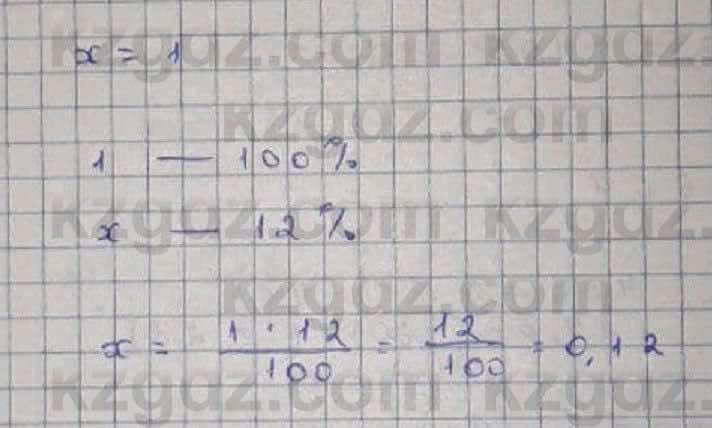 kzgdz.com kzgdz.com
x = 1
kzgdz.com
1 — 100%
kzgdz.com kzgdz.com
x — 12%
kzgdz.com
x = 1 · 12 / 100 = 12 / 100 = 0,12
kzgdz.com kzgdz.com